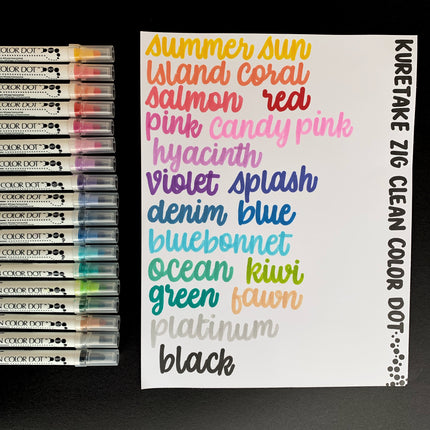 summer sun
Island Coral
salmon red
pink candy pink
hyacinth
violet splash
denim blue
bluebonnet
ocean kiwi
green fawn
platinum
black
KURETAKE ZIG CLEAN COLOR DOT
COLOR DOT
COLOR DOT
COLOR DOT
COLOR DOT
COLOR DOT
COLOR DOT
COLOR DOT
COLOR DOT
COLOR DOT
COLOR DOT
COLOR DOT
COLOR DOT
COLOR DOT
COLOR DOT
COLOR DOT
COLOR DOT